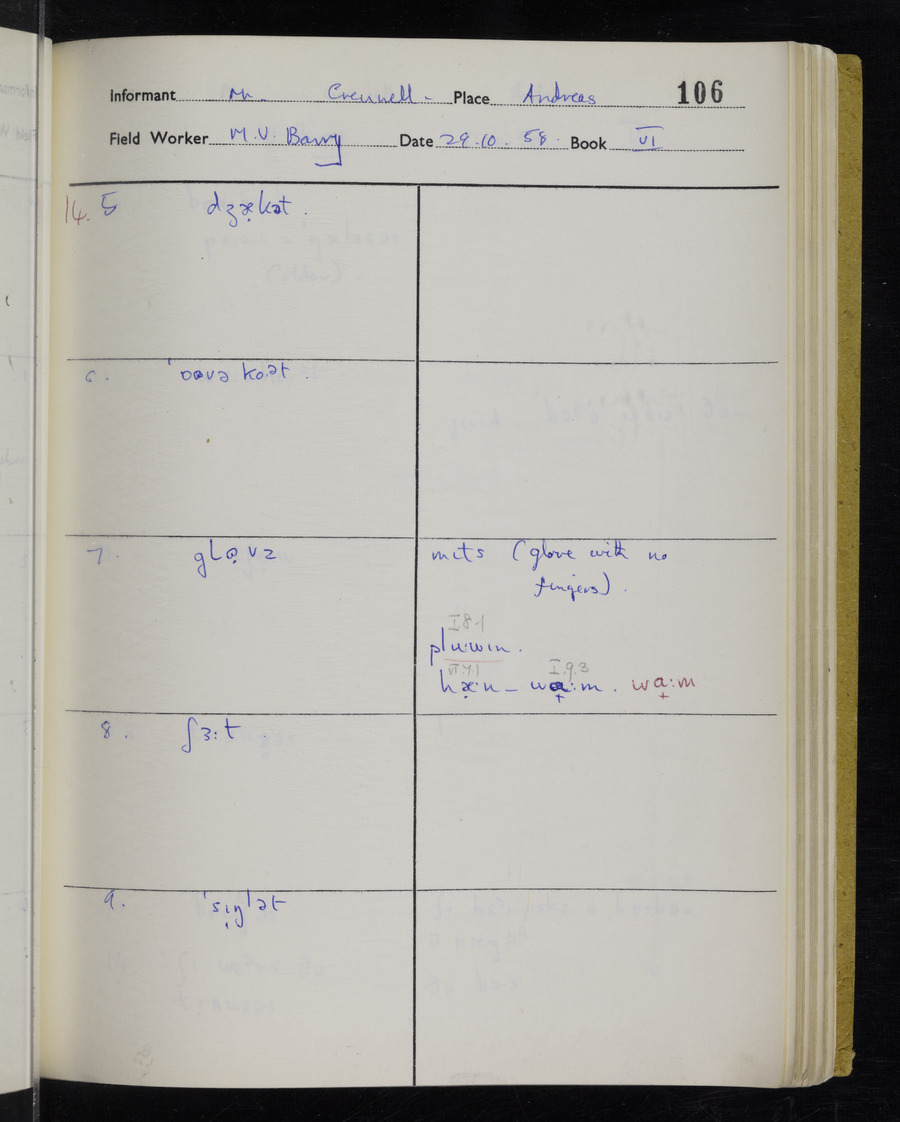 Informant Mr. Crennell - Place Andreas 106
Field Worker M.V. Barry Date 29.10.58. Book VI
14. 5 dʒæ̣kət.
6. ˈɒʋvə ko.ət.
7. glə̣vz
mɩts (glove with no
fingers).
I 8.1
plu:wɩn.
VI.7.1 I.9.3
hæ̣·n - wa̟:m. wa̟:m
8. ʃɜ:t
9. ˈsɩ̣ŋlət